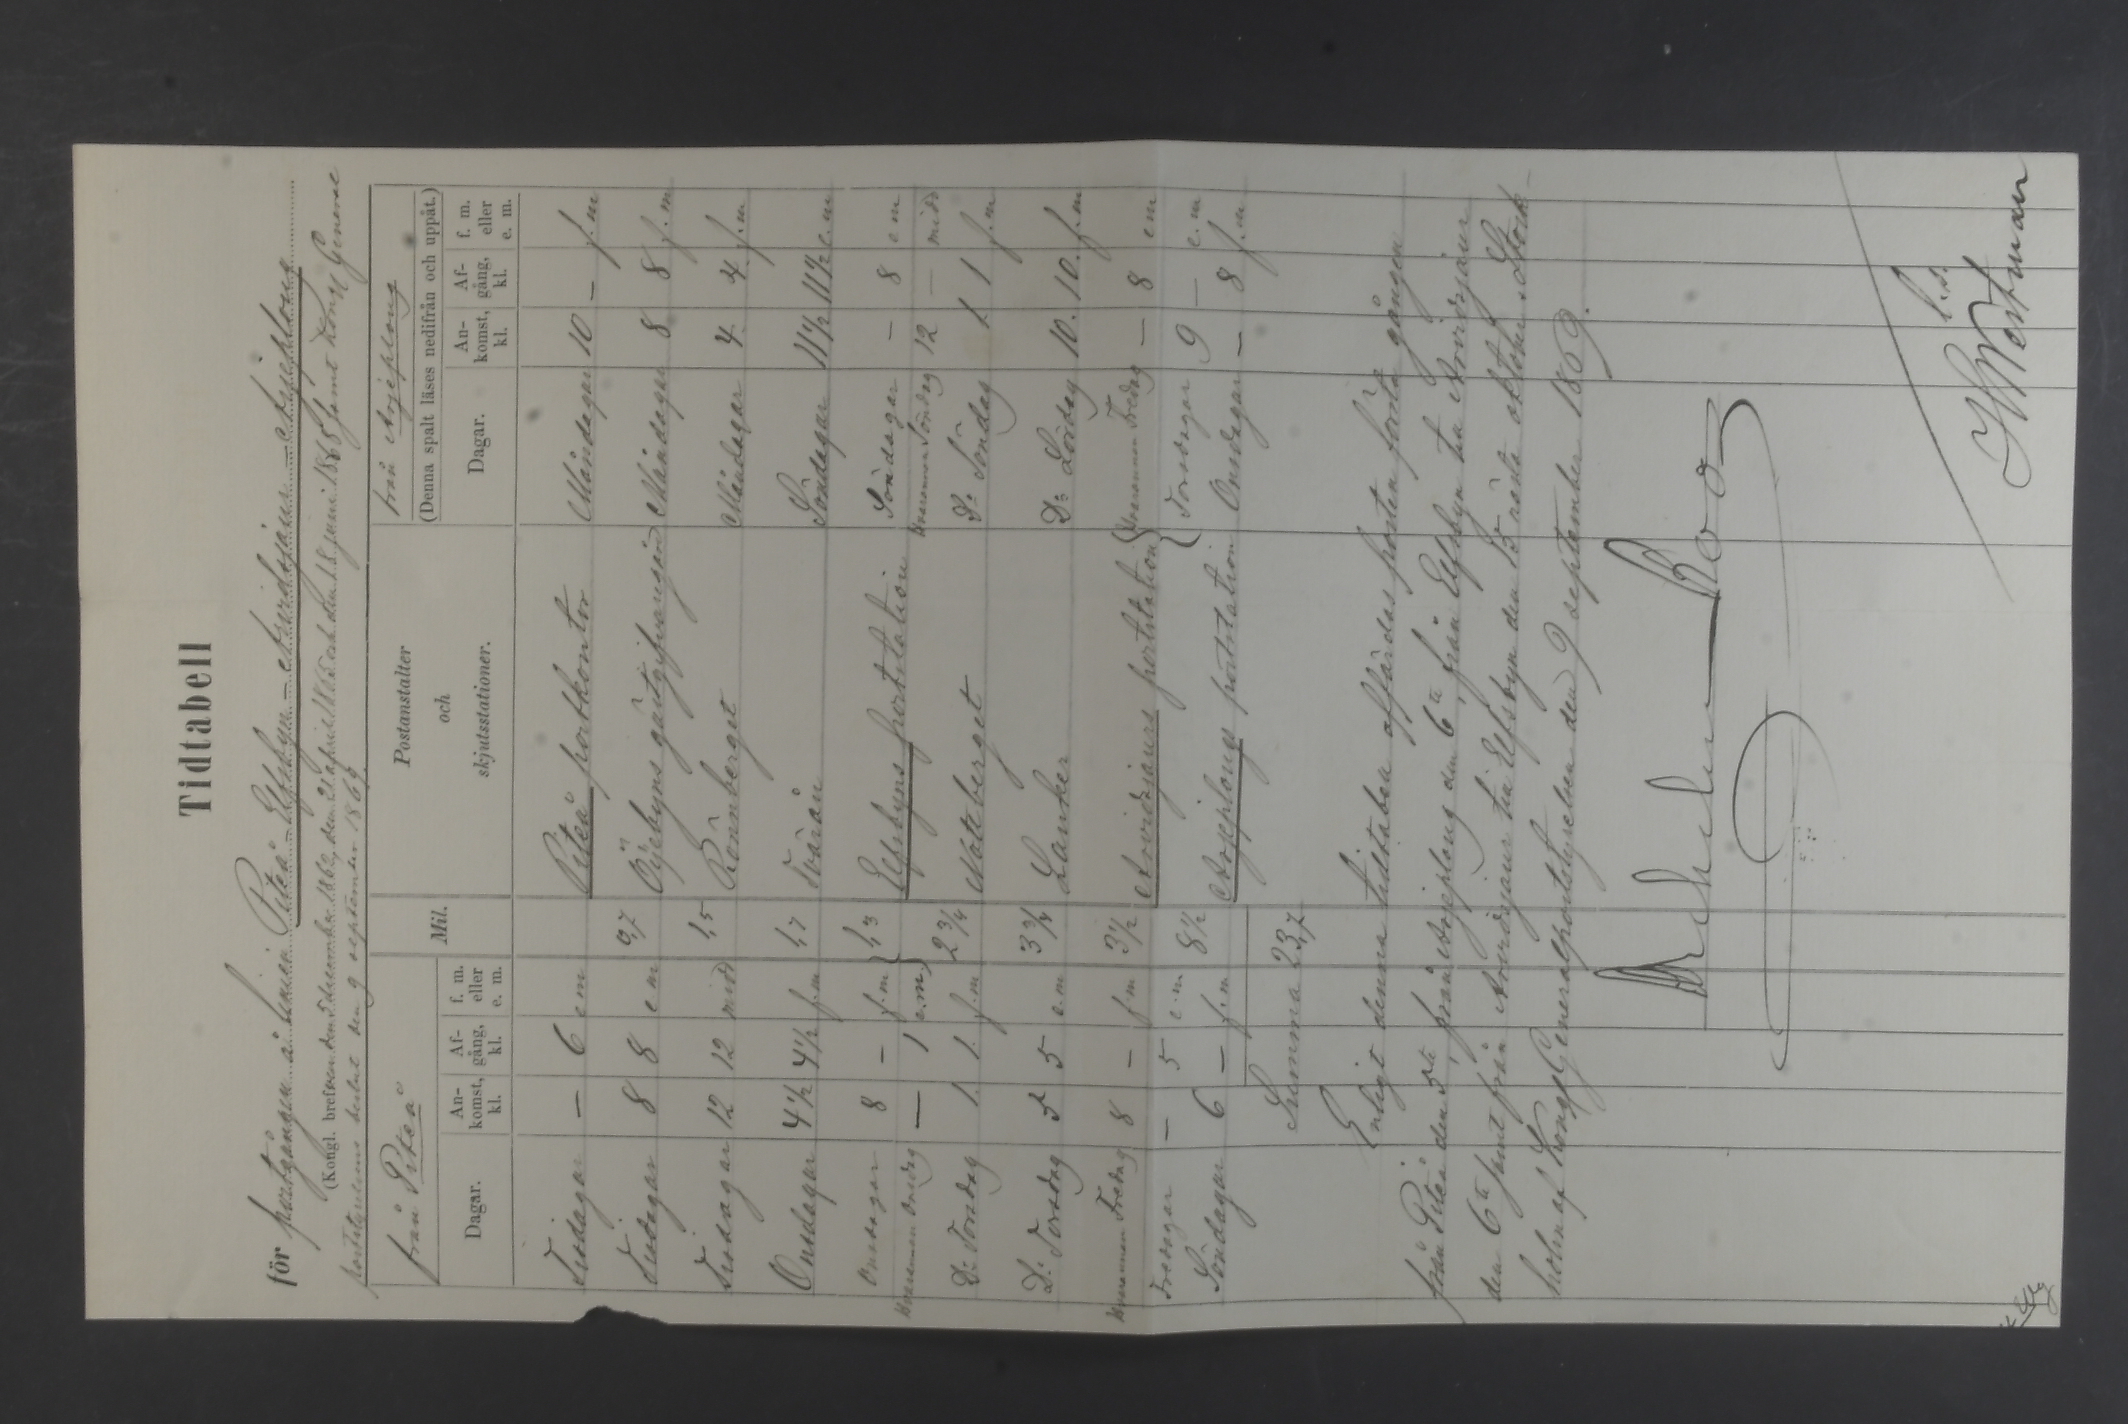 Tidtabell
för postgången å linien Piteå – Elfsbyn – Arvidsjaur – Arjeplong
(Kongl. brefven den 5 december 1862, den 21 april 1865 och den 18 juni 1868 samt Kongl General
poststyrelsens beslut den 9 september 1869.
från Piteå Mil. Postanstalter och skjutsstationer. från Arjeplong
(Denna spalt läses nedifrån och uppåt.)
Dagar. Ankomst, kl. Afgång, kl. f. m. eller e. m. Dagar. Ankomst, kl. Afgång, kl. f. m. eller e. m.
Tisdagar – 6 e m Piteå postkontor Måndagar 10 – f. m
Tisdagar 8 8 e m 0,7 Öjebyns gästgifvaregård Måndagar 8 8 f. m
Tisdagar 12 12 midd 1,5 Rönnberget Måndagar 4 4 f. m.
Onsdagar 4 1/2 4 1/2 f. m 1,7 Tvärån Söndagar 11 1/2 11 1/2 e. m
Onsdagar 8 – f. m } 1,3 Elfsbyns poststation Söndagar – 8 e m
Hvarannan Onsdag – 1 e. m } Hvarannan Söndag 12 – midd
Do Torsdag 1. 1. f. m 2 3/4 Nattberget Do Söndag 1 1 f. m
Do Torsdag 5 5 e. m 3 3/4 Lauker Do Lördag 10. 10. f. m
Hvarannan Fredag 8 – f m 3 1/2 Arvidsjaurs poststation { Hvarannan Fredag – 8 e m
Fredagar – 5 e. m { Torsdagar 9 – e. m
Söndagar 6 – f. m 8 1/2 Arjeplongs poststation Onsdagar – 8 f. m
Summa 23,7
Enligt denna tidtabell affärdas posten första gången
från Piteå den 5te, från Arjeplong den 6te, från Elfsbyn till Arvidsjaur
den 6te samt från Arvidsjaur till Elfsbyn den 15 nästa oktober. Stock-
holm af Kongl Generalpoststyrelsen den 9 september 1869.
Wilhelm Roos
H Westman